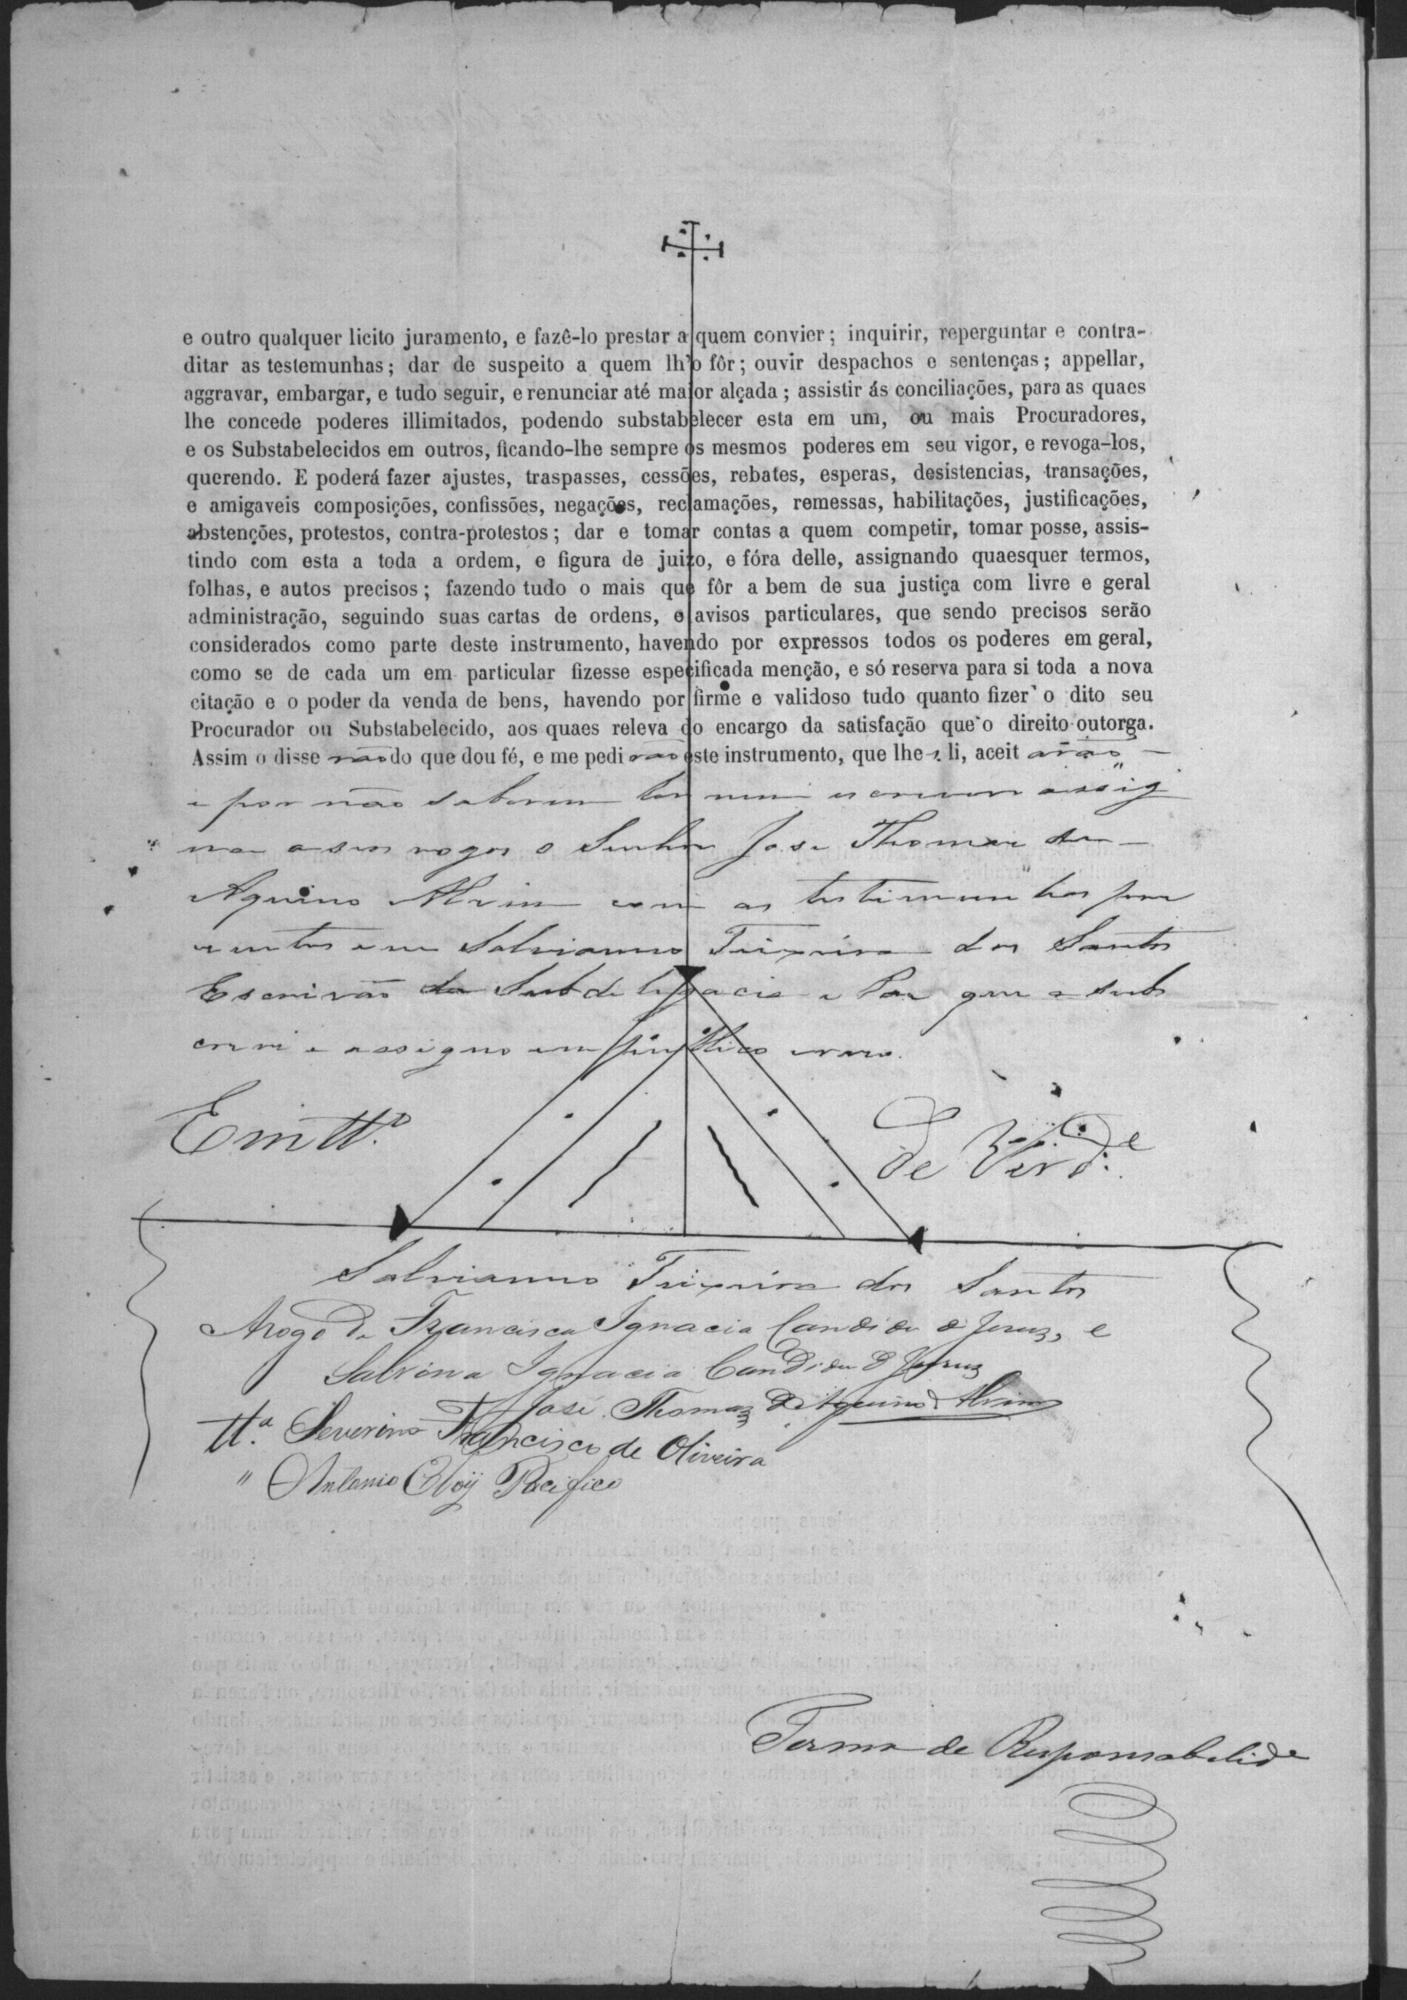 e outro qualquer licito juramento, e fazê-lo prestar a quem convier; inquirir, reperguntar e contra-
ditar as testemunhas; dar de suspeito a quem lh'o fôr; ouvir despachos e sentenças; appellar,
aggravar, embargar, e tudo seguir, e renunciar até maior alçada; assistir ás conciliações, para as quaes
lhe concede poderes illimitados, podendo substabelecer esta em um, ou mais Procuradores,
e os Substabelecidos em outros, ficando-lhe sempre os mesmos poderes em seu vigor, e revoga-los,
querendo. E poderá fazer ajustes, traspasses, cessões, rebates, esperas, desistencias, transações,
e amigaveis composições, confissões, negações, reclamações, remessas, habilitações, justificações,
abstenções, protestos, contra-protestos; dar e tomar contas a quem competir, tomar posse, assis-
tindo com esta a toda a ordem, e figura de juizo, e fóra delle, assignando quaesquer termos,
folhas, e autos precisos; fazendo tudo o mais que fôr a bem de sua justiça com livre e geral
administração, seguindo suas cartas de ordens, e avisos particulares, que sendo precisos serão
considerados como parte deste instrumento, havendo por expressos todos os poderes em geral,
como se de cada um em particular fizesse especificada menção, e só reserva para si toda a nova
citação e o poder da venda de bens, havendo por firme e validoso tudo quanto fizer o dito seu
Procurador ou Substabelecido, aos quaes releva do encargo da satisfação que o direito outorga.
Assim o disse rão do que dou fé, e me pedi rão este instrumento, que lhe s li, aceit arão
e por não saberem ler nem escrever assig
na a seu rogo o Senhor Jose Thomaz de
Aquino Alvim com as testimunhas pre
sentes eu Salvianno Teixeira dos Santos
Escrivão da Subdelegacia e Paz que o sub
crevi e assigno em publico e raso.
Em tt.º de Verd.e
Salvianno Teixeira dos Santos
Arogo de Francisca Ignacia Candida d Jesuz, e
Sabrina Ignacia Candida d Jesuz
José Thomaz d'Aquino Alvim
tt.ª Severino Francisco de Oliveira
" Antonio Eloÿ Pacifico
Termo de Responsabelide